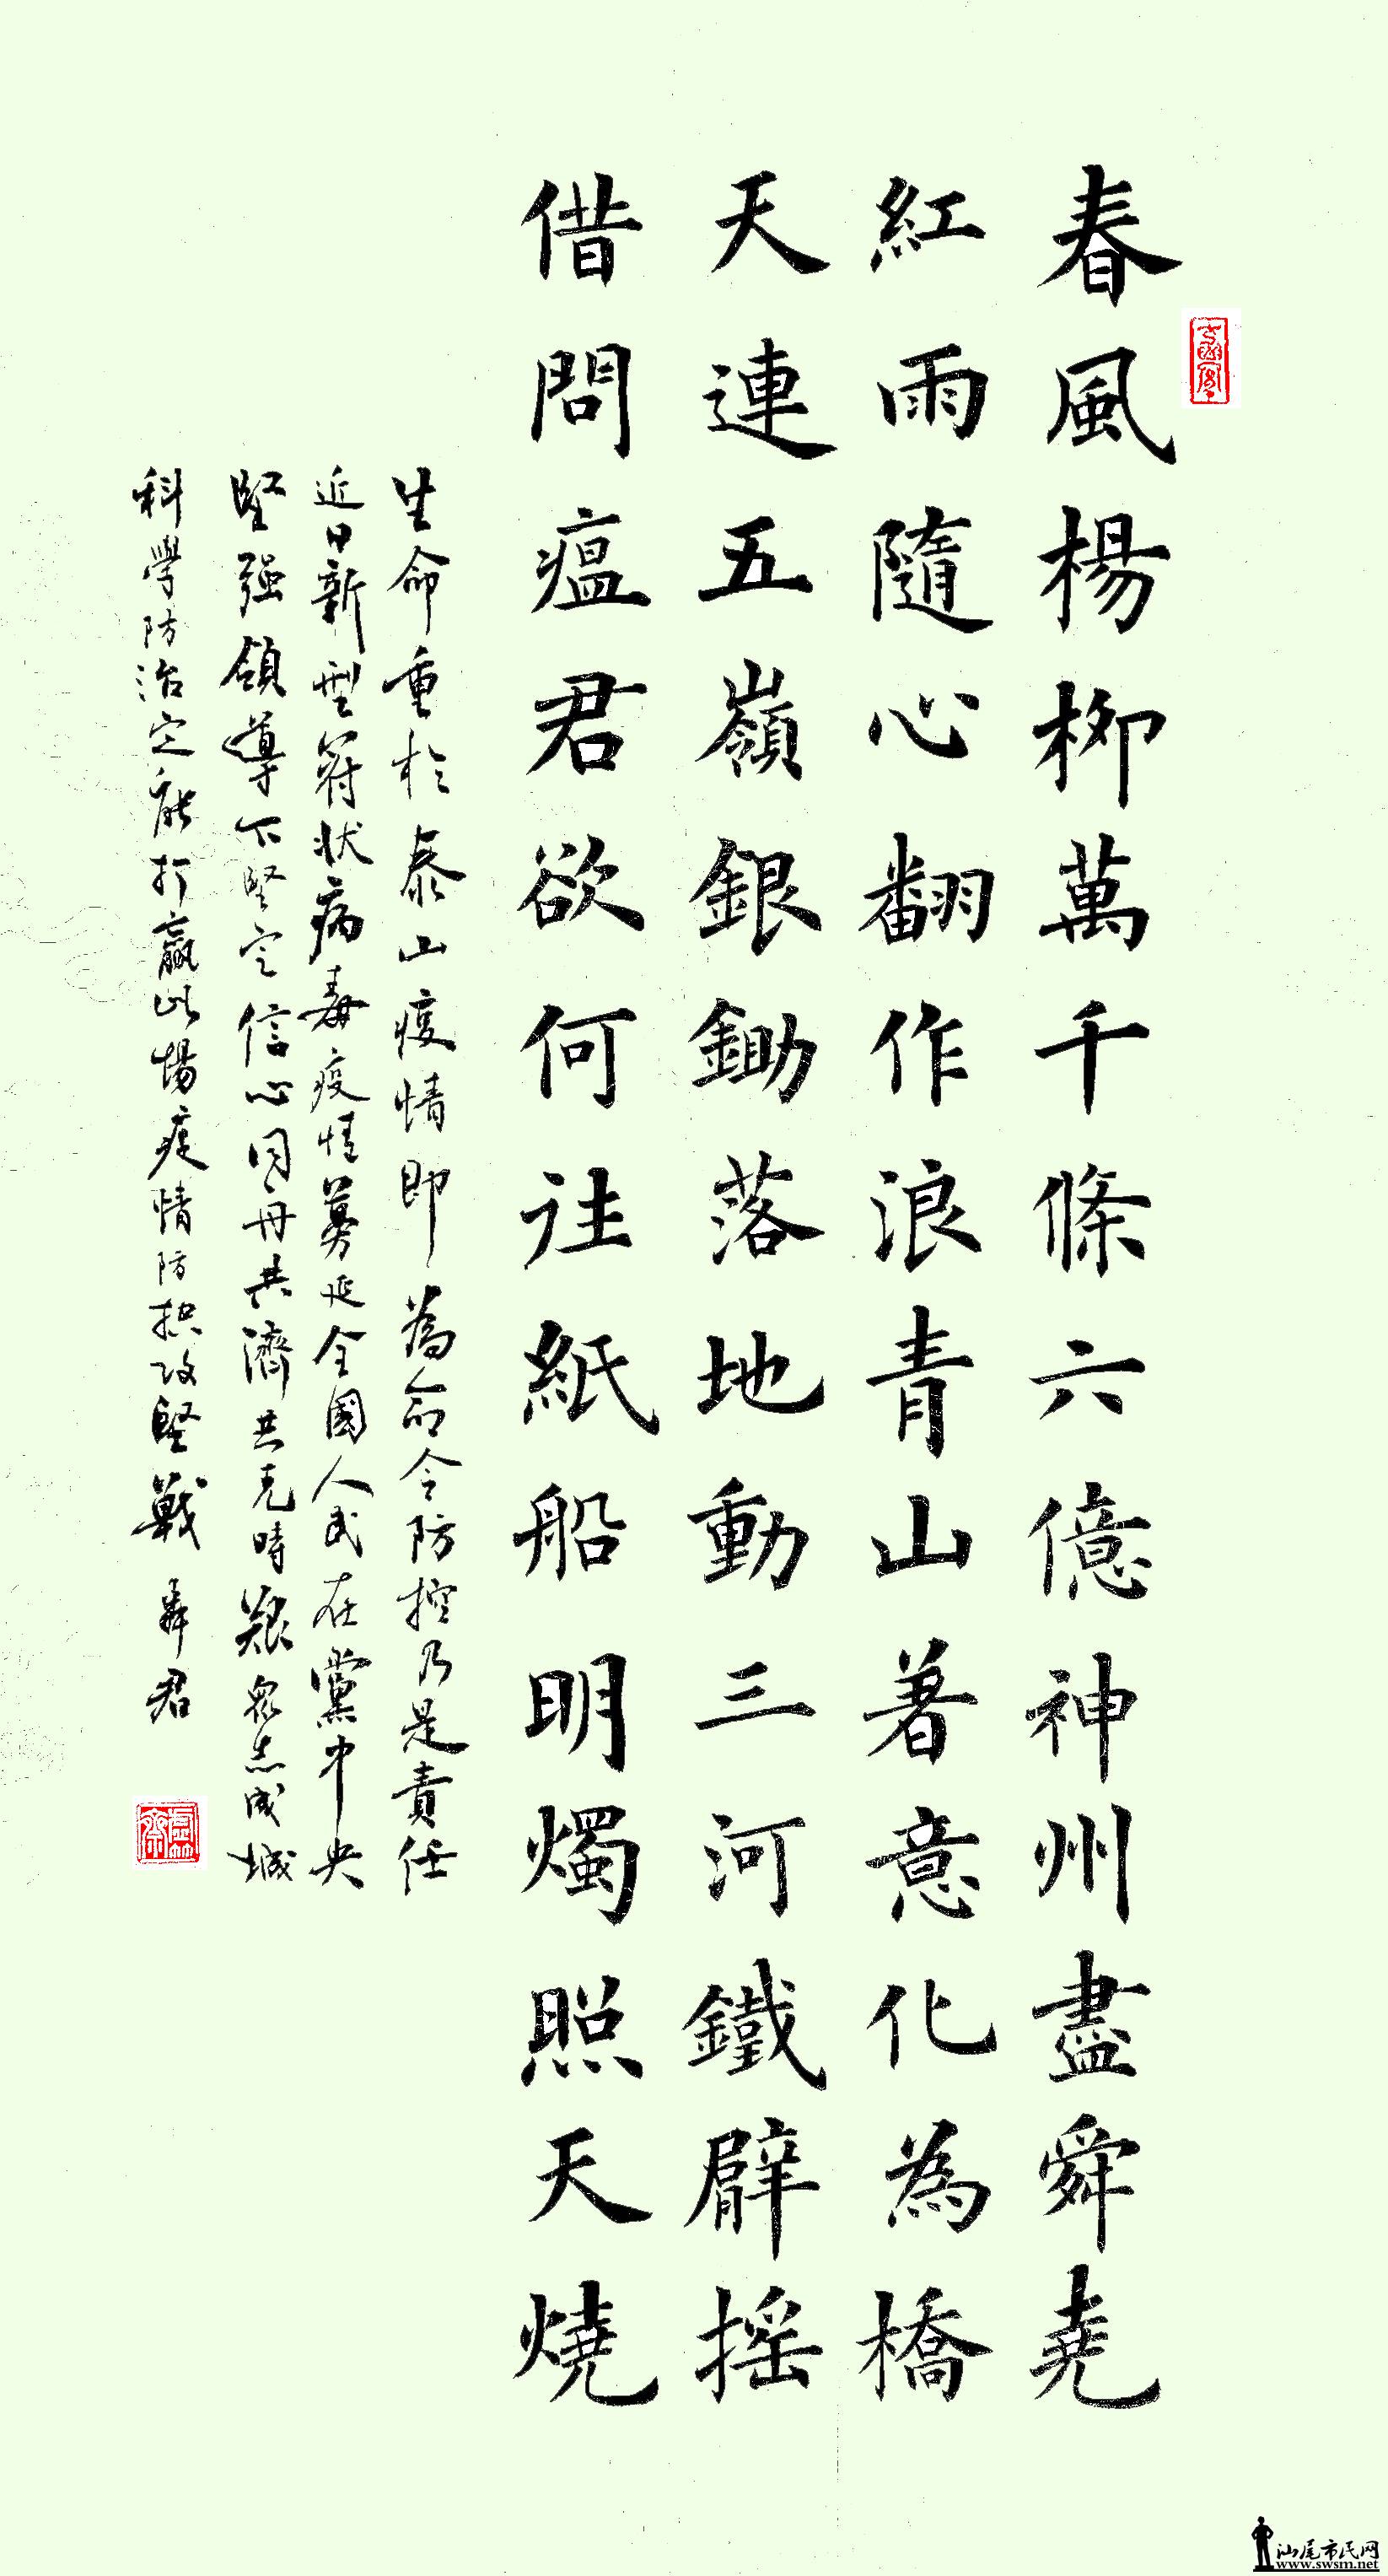 春風楊柳萬千條六億神州盡舜堯
紅雨隨心翻作浪青山著意化為橋
天連五嶺銀鋤落地動三河鐵臂搖
借問瘟君欲何往紙船明燭照天燒
生命重於泰山疫情即為命令防控乃是責任
近日新型冠狀病毒疫情蔓延全國人民在黨中央
堅强領導下堅定信心同舟共濟共克時艱眾志成城
科學防治定能打贏此場疫情防控攻堅戰 君
汕尾市民网
www.swsm.net